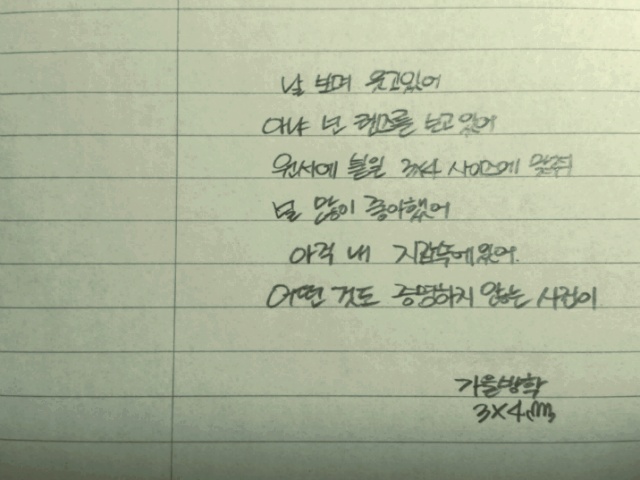 날 보며 웃고있어
아냐 넌 렌즈를 보고있어
원서에 붙일 3x4 사이즈에 맞춰
널 많이 좋아했어
아직 내 지갑속에있어.
어떤 것도 증명하지 않는 사진이
가을방학
3x4cm